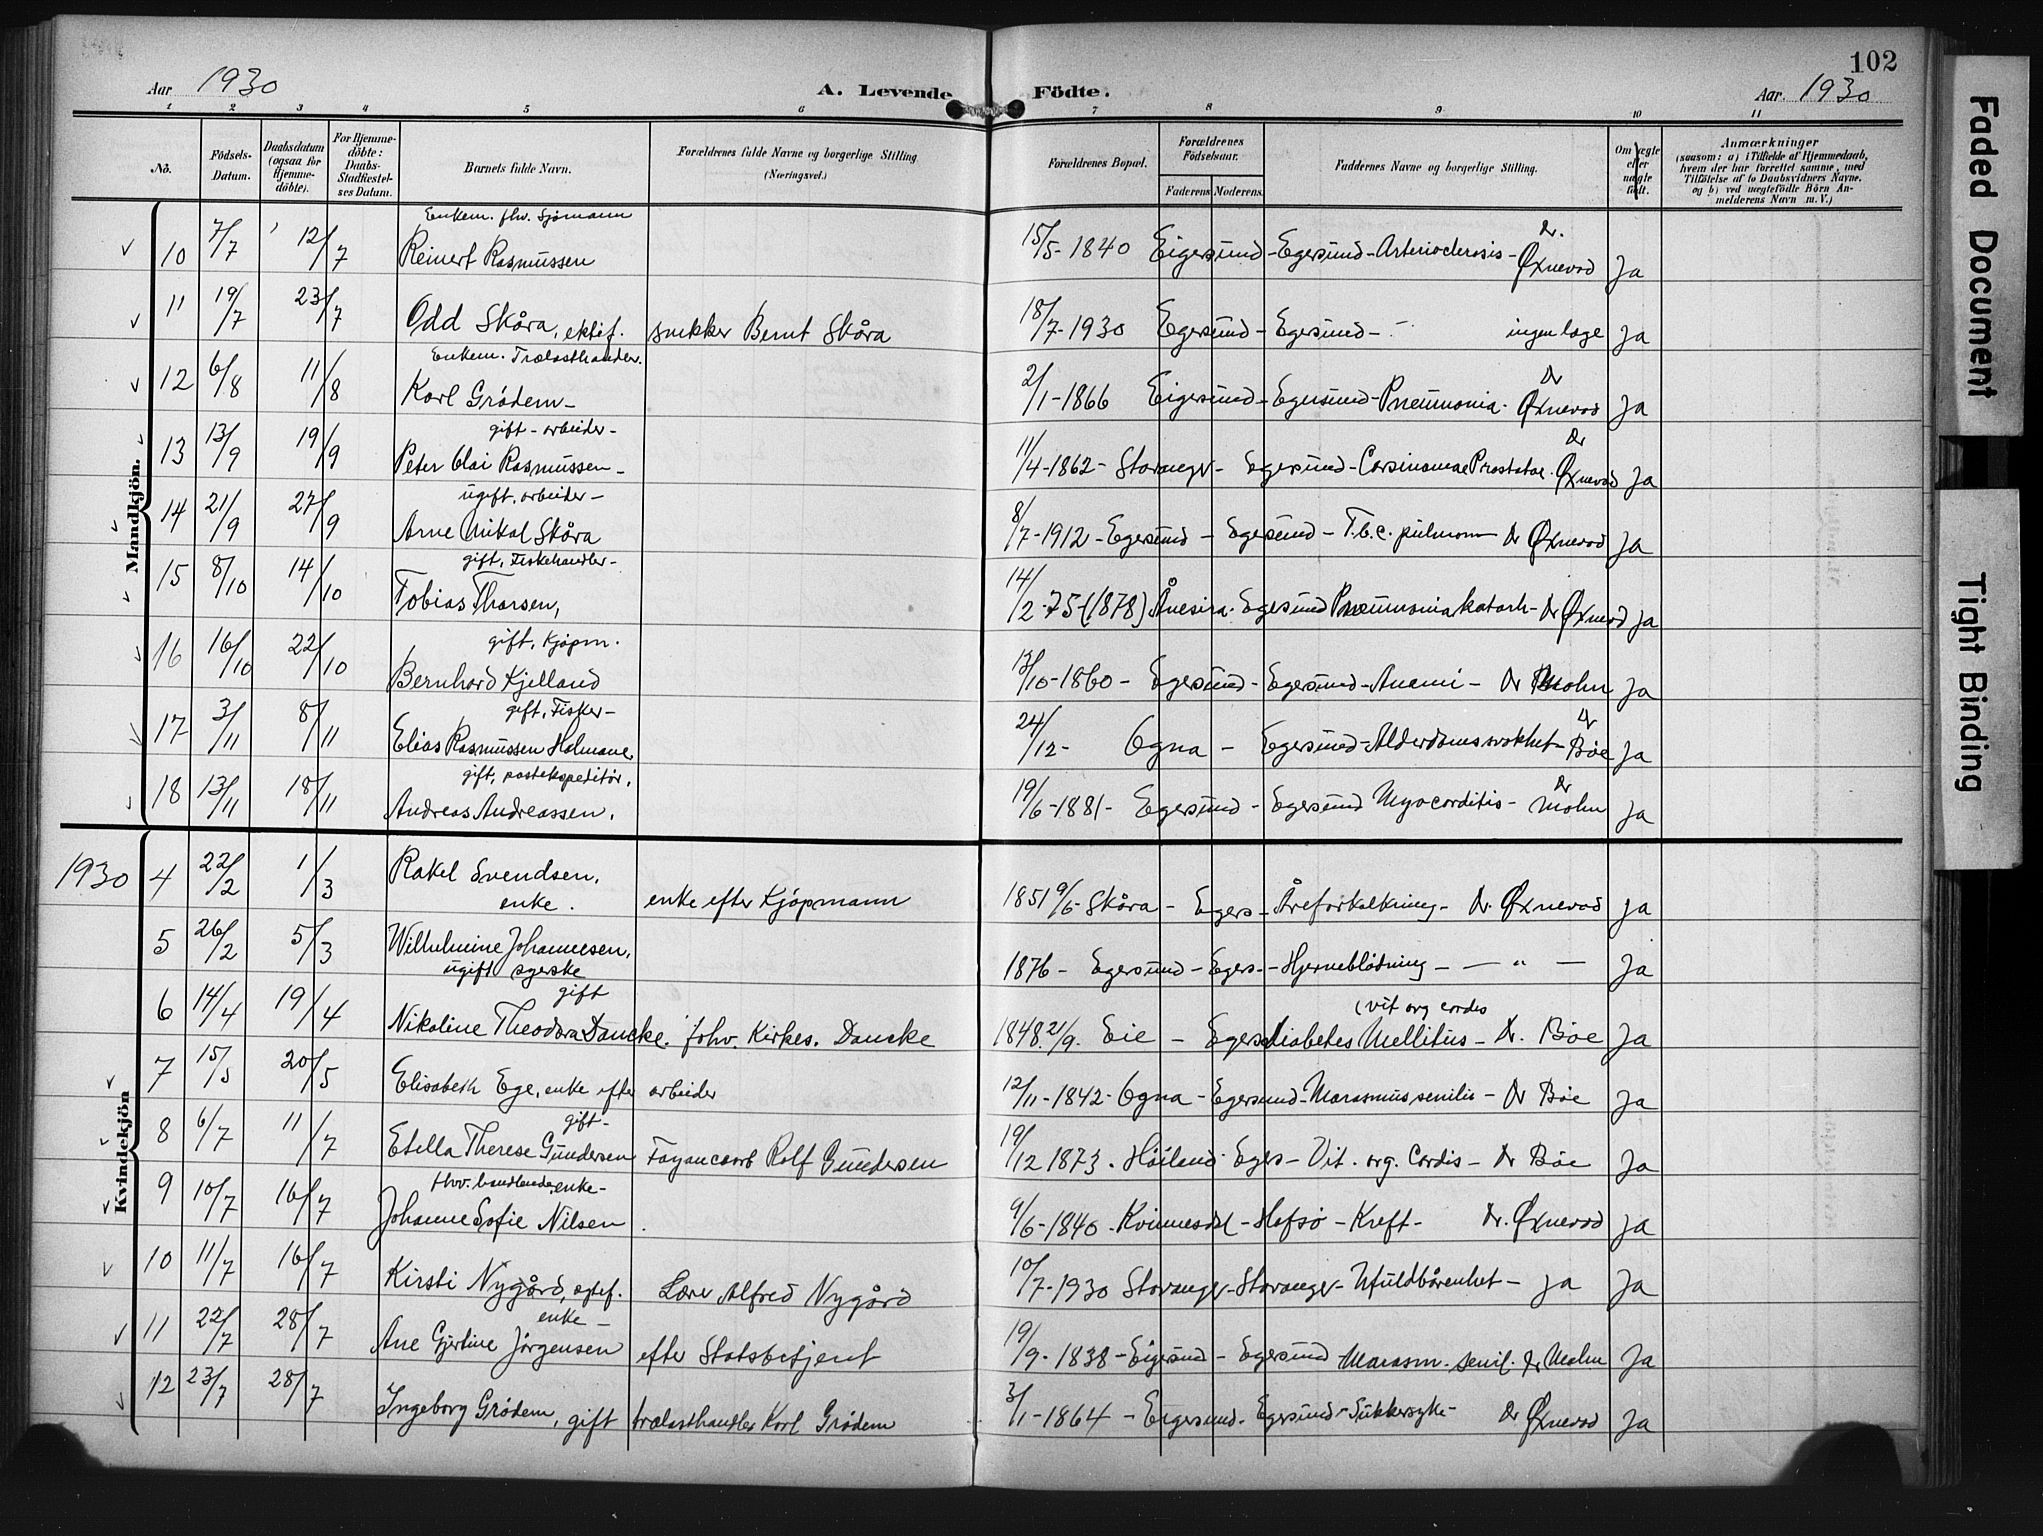 102
Aar 1930 A. Levende Födte. Aar. 1930
1 2 3 4 5 6 7 8 9 10 11
No. Födsels-Datum. Daabsdatum (ogsaa for Hjemme-döbte). For Hjemme-döbte: Daabs-Stadfæstel-ses Datum. Barnets fulde Navn. Forældrenes fulde Navne og borgerlige Stilling. (Næringsvei.) Forældrenes Bopæl. Forældrenes Födselsaar. Faderens. Moderens. Faddernes Navne og borgerlige Stilling. Om ægte eller uægte födt. Anmærkninger (saasom: a) i Tilfælde af Hjemmedaab, hvem der har forrettet samme, med Tilföielse af to Daabsvidners Navne, og b) ved uægtefödte Börn An-melderens Navn m. V.)
Mandkjön.
Enkem. fhv. Sjømann
10 7/7 12/7 Reinert Rasmussen 15/5-1840 Eigersund-Egersund-Arteriosclerosis-Dr. Øxnevad Ja
11 19/7 23/7 Odd Skåra, ektef. snekker Bernt Skåra 18/7-1930 Egersund-Egersund- - ingen læge Ja
Enkem. Trælasthandler.
12 6/8 11/8 Karl Grødem- 2/1-1866 Eigersund-Egersund-Pneumonia. Dr Øxnevad Ja
gift-arbeider-
13 13/9 19/9 Peter Olai Rasmussen- 11/4-1862-Stavanger-Egersund-Carsinomae Prostatae. Dr Øxnevad Ja
ugift. arbeider-
14 21/9 27/9 Arne Mikal Skåra 8/7-1912-Egersund-Egersund-T.b.c. pulmonn Dr Øxnevad Ja
gift, Fiskehandler-
15 8/10 14/10 Tobias Thorsen, 14/2-75-(1878) Ånesira. Egersund Pneumonia katarrh-Dr Øxnevad Ja
gift, Kjøpm.
16 16/10 22/10 Bernhard Kjelland 13/10-1860-Egersund-Egersund-Anemi-Dr Mohn Ja
gift, Fisker-
17 3/11 8/11 Elias Rasmussen 24/12- Ogna-Egersund-Alderdomssvakhet-Dr Bøe Ja
gift, postekspeditör.
18 13/11 18/11 Andreas Andreassen. 19/6-1881-Egersund-Egersund Myocorditis-Dr Mohn Ja
Kvindekjön
1930 4 22/2 1/3 Rakel Svendsen.
enke. enke efter Kjøpmann 1851 9/6-Skåra-Egers-Åreforkalkning-Dr. Øxnevad Ja
5 26/2 5/3 Wilhelmine Johannesen.
ugift syerske 1876-Egersund-Egers.-Hjerneblödning- — " — Ja
gift (vit org cordis
6 14/4 19/4 Nikoline Theodora Dancke. forhv. Kirkes. Dancke 1848. 21/9. Eie-Egers diabetes Mellitus-Dr. Bøe Ja
7 15/5 20/5 Elisabeth Ege, enke efter arbeider 12/11-1842-Ogna-Egersund-Marasmus senilis-Dr Bøe Ja
gift-
8 6/7 11/7 Etella Therese Gundersen Fayancearb Rolf Gundersen 19/12 1873. Höiland. Egers-Vit. org. Cordis-Dr Bøe Ja
fhvv. handlende, enke-
9 10/7 16/7 Johanne Sofie Nilsen. 9/6-1840. Kvinnesdal-Hafsø-Kreft- Dr. Øxnevad Ja
10 11/7 16/7 Kirsti Nygård, Lærer Alfred Nygård 10/7-1930 Stavanger-Stavanger-Ufuldbårenhet-Ja Ja
enke-
11 22/7 28/7 Ane Gjertine Jörgensen efter Statsbetjent 19/9-1838-Eigersund-Egersund-Marasm. senil. Dr Mohn Ja
12 23/7 28/7 Ingeborg Grödem, gift trælasthandler Karl Grödem 3/1-1864-Eigersund. Egersund-Sukkersyke- Dr Øxnevad Ja
Faded Document
Tight Binding